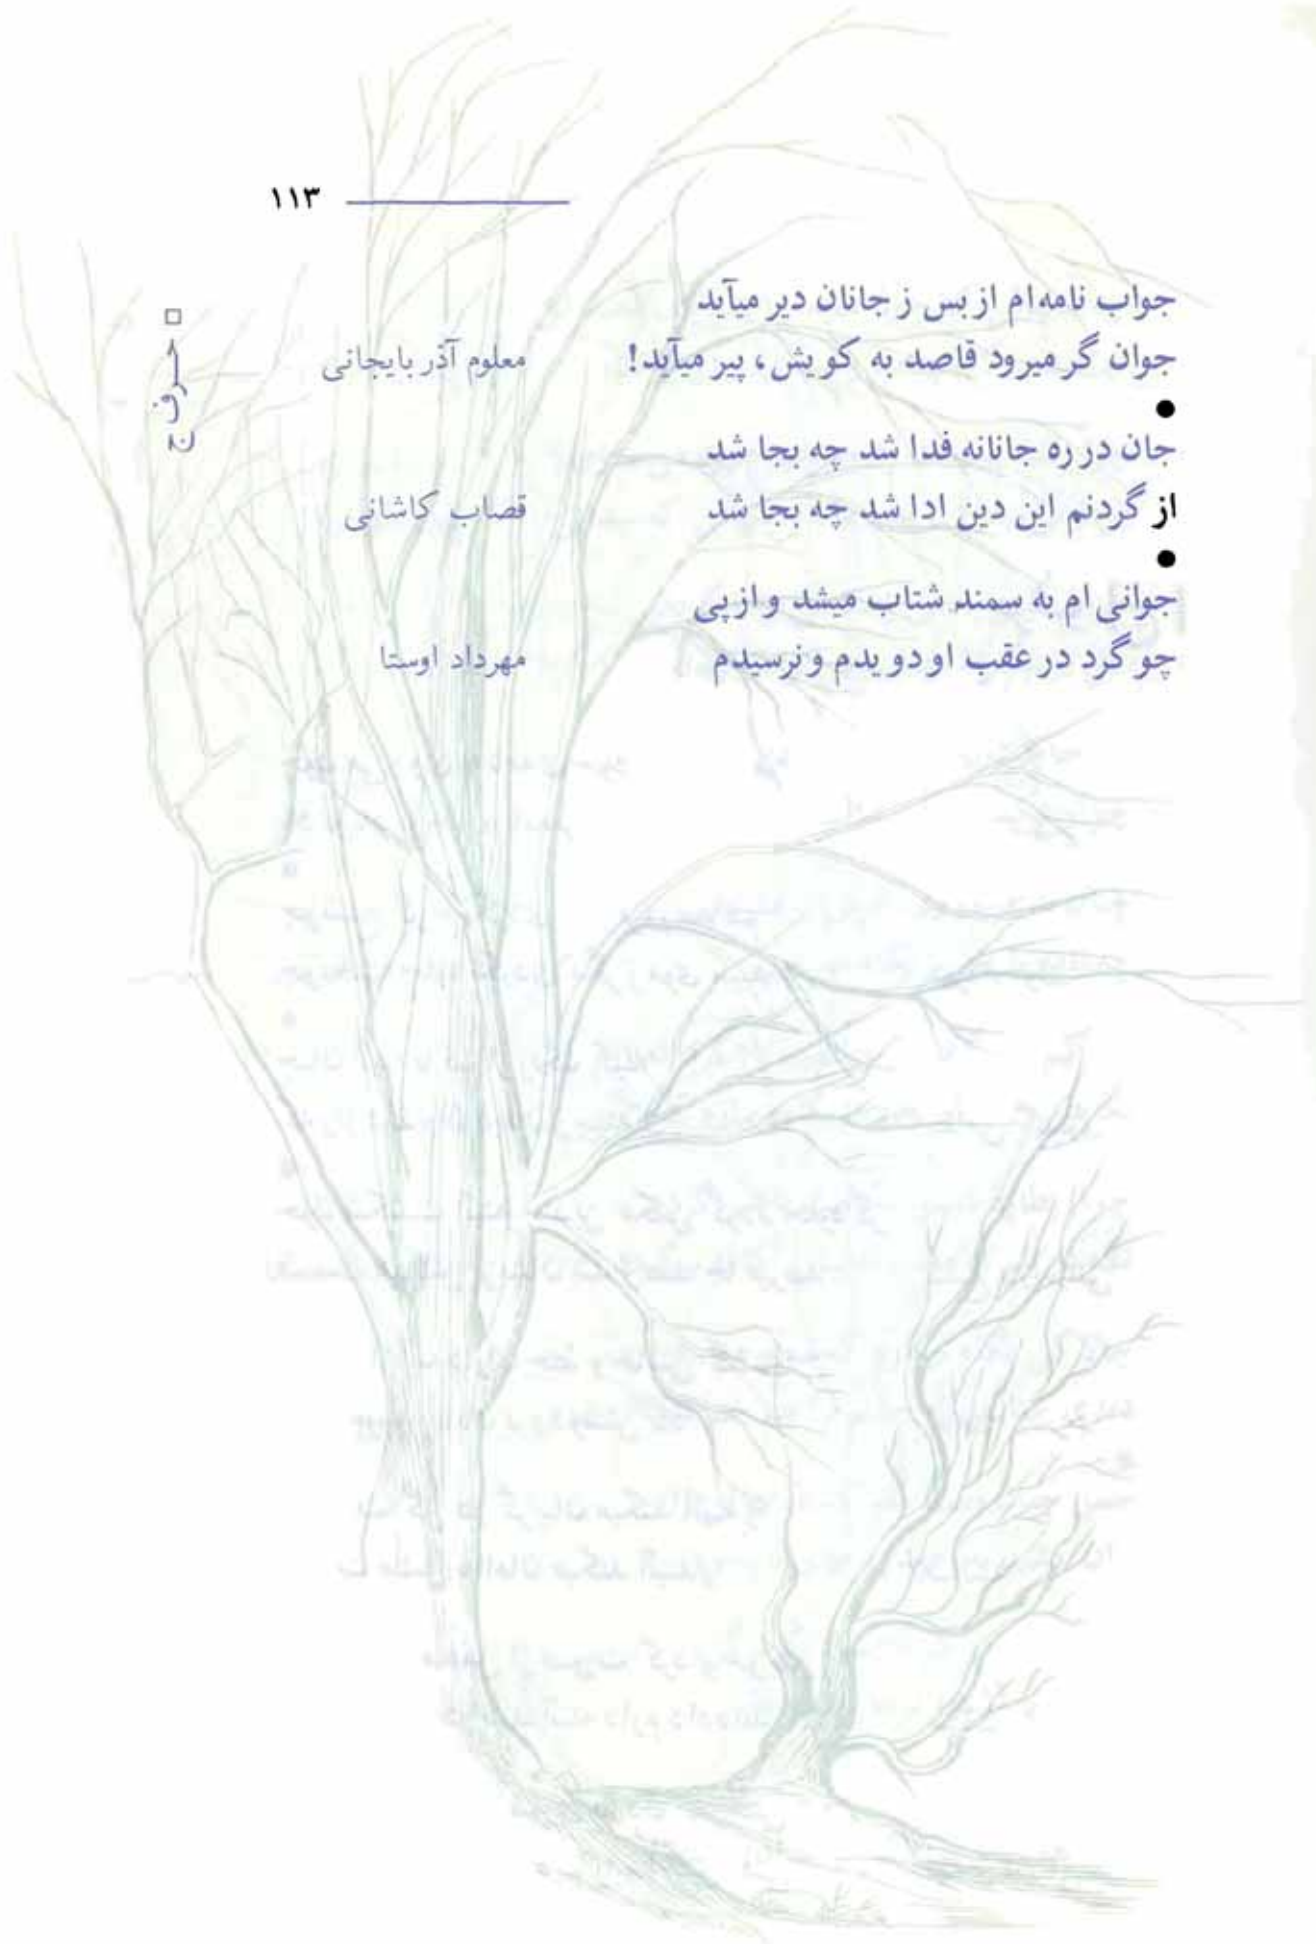 ۱۱۳
□ حرف ج
جواب نامه‌ام از بس ز جانان دیر میآید
جوان گر میرود قاصد به کویش، پیر میآید! معلوم آذربایجانی
●
جان در ره جانانه فدا شد چه بجا شد
از گردنم این دین ادا شد چه بجا شد قصاب کاشانی
●
جوانی‌ام به سمند شتاب میشد و از پی
چو گرد در عقب او دویدم و نرسیدم مهرداد اوستا